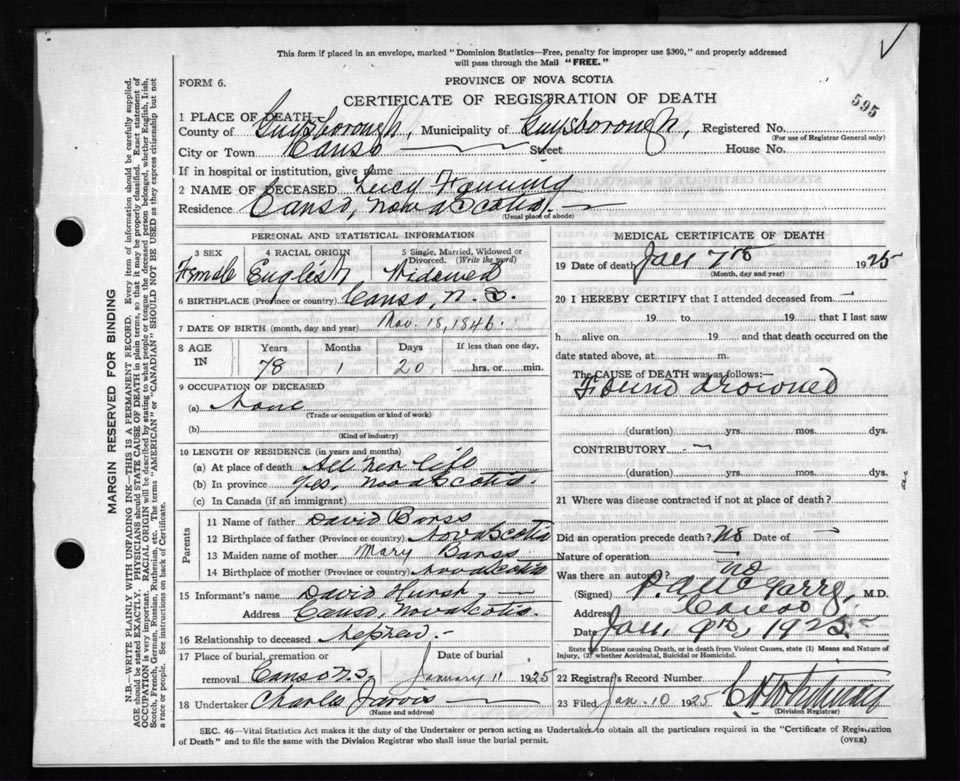 This form if placed in an envelope, marked "Dominion Statistics—Free, penalty for improper use $300," and properly addressed
will pass through the Mail "FREE."
FORM 6.
PROVINCE OF NOVA SCOTIA
CERTIFICATE OF REGISTRATION OF DEATH
595
1 PLACE OF DEATH
County of Guysborough, Municipality of Guysborough, Registered No.
(For use of Registrar General only)
City or Town Canso Street House No.
If in hospital or institution, give name
2 NAME OF DECEASED Lucy Fanning
Residence Canso, Nova Scotia.
(Usual place of abode)
PERSONAL AND STATISTICAL INFORMATION
3 SEX 4 RACIAL ORIGIN 5 Single, Married, Widowed or Divorced. (Write the word)
Female English Widowed
6 BIRTHPLACE (Province or country) Canso, N.S.
7 DATE OF BIRTH (month, day and year) Nov. 18, 1846.
8 AGE IN Years Months Days If less than one day,
78 1 20 hrs. or min.
9 OCCUPATION OF DECEASED
(a) None
(Trade or occupation or kind of work)
(b)
(Kind of industry)
10 LENGTH OF RESIDENCE (in years and months)
(a) At place of death All her life
(b) In province Yes, Nova Scotia.
(c) In Canada (if an immigrant)
Parents
11 Name of father David Barss
12 Birthplace of father (Province or country) Nova Scotia
13 Maiden name of mother Mary Barss
14 Birthplace of mother (Province or country) Nova Scotia
15 Informant's name David Hurst,
Address Canso, Nova Scotia.
16 Relationship to deceased Nephew.
17 Place of burial, cremation or removal Canso N.S Date of burial January 11 1925
18 Undertaker Charles Jarvis
(Name and address)
MEDICAL CERTIFICATE OF DEATH
19 Date of death Jan 7th 1925
(Month, day and year)
20 I HEREBY CERTIFY that I attended deceased from
19 to 19 , that I last saw
h alive on 19 and that death occurred on the
date stated above, at m.
The CAUSE of DEATH was as follows:
Found drowned
(duration) yrs. mos. dys.
CONTRIBUTORY
(duration) yrs. mos. dys.
21 Where was disease contracted if not at place of death?
Did an operation precede death? No Date of
Nature of operation
Was there an autopsy? no
(Signed) P. A. McGarry, M.D.
Address Canso
Date Jan. 9th, 1925.
State the Disease causing Death, or in death from Violent Causes, state (1) Means and Nature of
Injury, (2) whether Accidental, Suicidal or Homicidal.
22 Registrar's Record Number
23 Filed Jan. 10 1925
(Division Registrar)
SEC. 46—Vital Statistics Act makes it the duty of the Undertaker or person acting as Undertaker to obtain all the particulars required in the "Certificate of Registration
of Death" and to file the same with the Division Registrar who shall issue the burial permit.
(OVER)
MARGIN RESERVED FOR BINDING
N.B.—WRITE PLAINLY WITH UNFADING INK—THIS IS A PERMANENT RECORD. Every item of information should be carefully supplied.
AGE should be stated EXACTLY. PHYSICIANS should STATE CAUSE OF DEATH in plain terms, so that it may be properly classified. Exact statement of
OCCUPATION is very important. RACIAL ORIGIN will be described by stating to what people or tongue the deceased person belonged, whether English, Irish,
Scotch, French, German, Russian, Ruthenian, etc. The terms "AMERICAN" or "CANADIAN" SHOULD NOT BE USED as they express citizenship but not
a race or people. See instructions on back of Certificate.